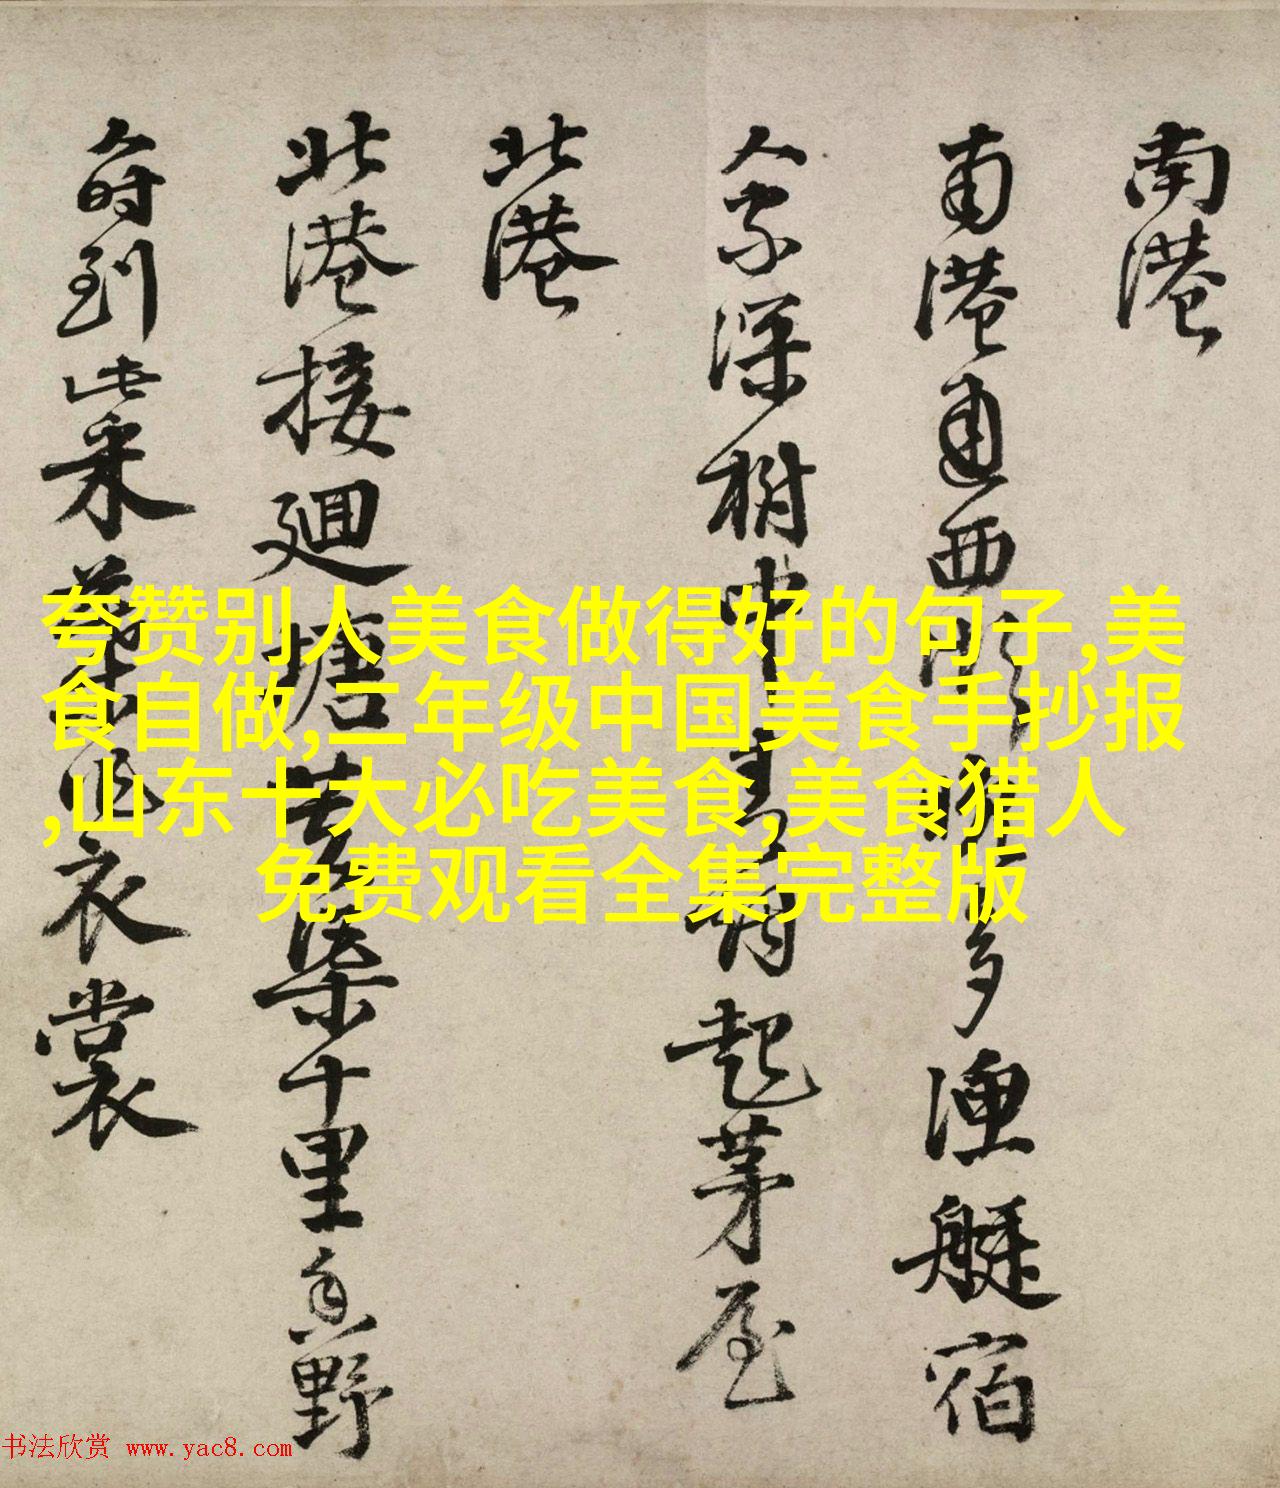 南港
南港通西湖晚多漁艇宿
人家深樹中青烟起茅屋
北港
北港接廻塘芙渠十里香野
人時到此采葉作衣裳
夸赞别人美食做得好的句子,美
食自做,二年级中国美食手抄报
,山东十大必吃美食,美食猎人
免费观看全集完整版
书法欣赏 www.yac8.com